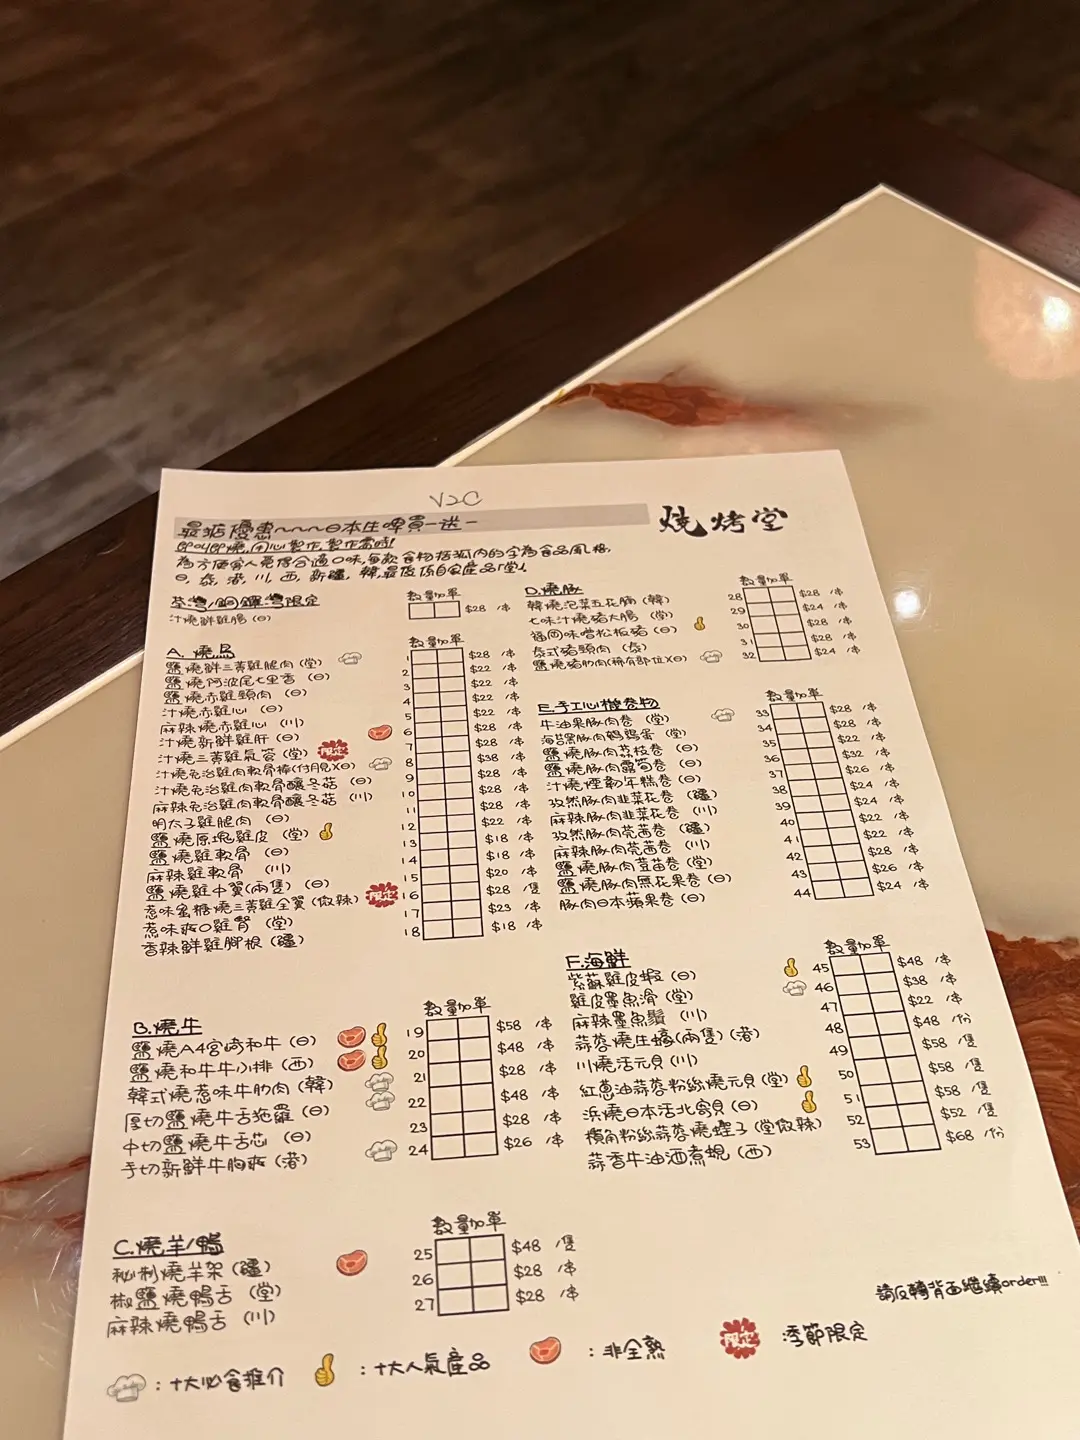 V2C
最掂優惠～～～日本生啤買一送一
燒烤堂
即叫即燒,用心製作,製作需時!
為方便客人覓得合適口味,每款食物括弧內的字為食品風格,
日,泰,港,川,西,新疆,韓,最後係自家產品「堂」
荃灣/銅鑼灣限定
數量 加單
汁燒鮮雞腸 (日) $28 /串
A. 燒鳥
數量 加單
鹽燒鮮三黃雞腿肉 (堂) 1 $28 /串
鹽燒阿波尾七里香 (日) 2 $22 /串
鹽燒赤雞頸肉 (日) 3 $22 /串
汁燒赤雞心 (日) 4 $22 /串
麻辣燒赤雞心 (川) 5 $22 /串
汁燒新鮮雞肝 (日) 6 $28 /串
汁燒三黃雞氣管 (堂) 限定 7 $28 /串
汁燒免治雞肉軟骨棒(付月見)(日) 8 $38 /串
汁燒免治雞肉軟骨釀冬菇 (日) 9 $28 /串
麻辣免治雞肉軟骨釀冬菇 (川) 10 $28 /串
明太子雞腿肉 (日) 11 $28 /串
鹽燒原塊雞皮 (堂) 12 $22 /串
鹽燒雞軟骨 (日) 13 $18 /串
麻辣雞軟骨 (川) 14 $18 /串
鹽燒雞中翼(兩隻) (日) 15 $20 /串
惹味蜜糖燒三黃雞全翼 (微辣) 限定 16 $28 /隻
惹味爽口雞腎 (堂) 17 $23 /串
香辣鮮雞腳根 (疆) 18 $18 /串
B. 燒牛
數量 加單
鹽燒A4宮崎和牛 (日) 19 $58 /串
鹽燒和牛牛小排 (西) 20 $48 /串
韓式燒惹味牛肋肉 (韓) 21 $28 /串
厚切鹽燒牛舌拖羅 (日) 22 $48 /串
中切鹽燒牛舌芯 (日) 23 $28 /串
手切新鮮牛胸爽 (港) 24 $26 /串
C. 燒羊/鴨
數量 加單
秘制燒羊架 (疆) 25 $48 /隻
椒鹽燒鴨舌 (堂) 26 $28 /串
麻辣燒鴨舌 (川) 27 $28 /串
D. 燒豚
數量 加單
韓燒泡菜五花腩 (韓) 28 $28 /串
七味汁燒豬大腸 (堂) 29 $24 /串
福岡味噌松板豬 (日) 30 $28 /串
泰式豬頸肉 (泰) 31 $28 /串
鹽燒豬肋肉(稀有部位)(日) 32 $24 /串
E. 手工心機卷物
數量 加單
牛油果豚肉卷 (堂) 33 $28 /串
海苔黑豚肉鵪鶉蛋 (堂) 34 $28 /串
鹽燒豚肉荔枝卷 (日) 35 $22 /串
鹽燒豚肉露筍卷 (日) 36 $32 /串
汁燒煙韌年糕卷 (日) 37 $26 /串
孜然豚肉韭菜花卷 (疆) 38 $24 /串
麻辣豚肉韭菜花卷 (川) 39 $24 /串
孜然豚肉芫茜卷 (疆) 40 $22 /串
麻辣豚肉芫茜卷 (川) 41 $22 /串
鹽燒豚肉荳苗卷 (堂) 42 $28 /串
鹽燒豚肉無花果卷 (日) 43 $26 /串
豚肉日本蘋果卷 (日) 44 $24 /串
F. 海鮮
數量 加單
紫蘇雞皮蝦 (日) 45 $48 /串
雞皮墨魚滑 (堂) 46 $38 /串
麻辣墨魚鬚 (川) 47 $22 /串
蒜蓉燒生蠔(兩隻) (港) 48 $48 /份
川燒活元貝 (川) 49 $58 /隻
紅蔥油蒜蓉粉絲燒元貝 (堂) 50 $58 /隻
浜燒日本活北寄貝 (日) 51 $58 /隻
欖角粉絲蒜蓉燒蟶子 (堂微辣) 52 $52 /隻
蒜香牛油酒煮蜆 (西) 53 $68 /份
請反轉背面繼續order!!!
:十大必食推介
:十大人氣產品
:非全熟
限定 季節限定